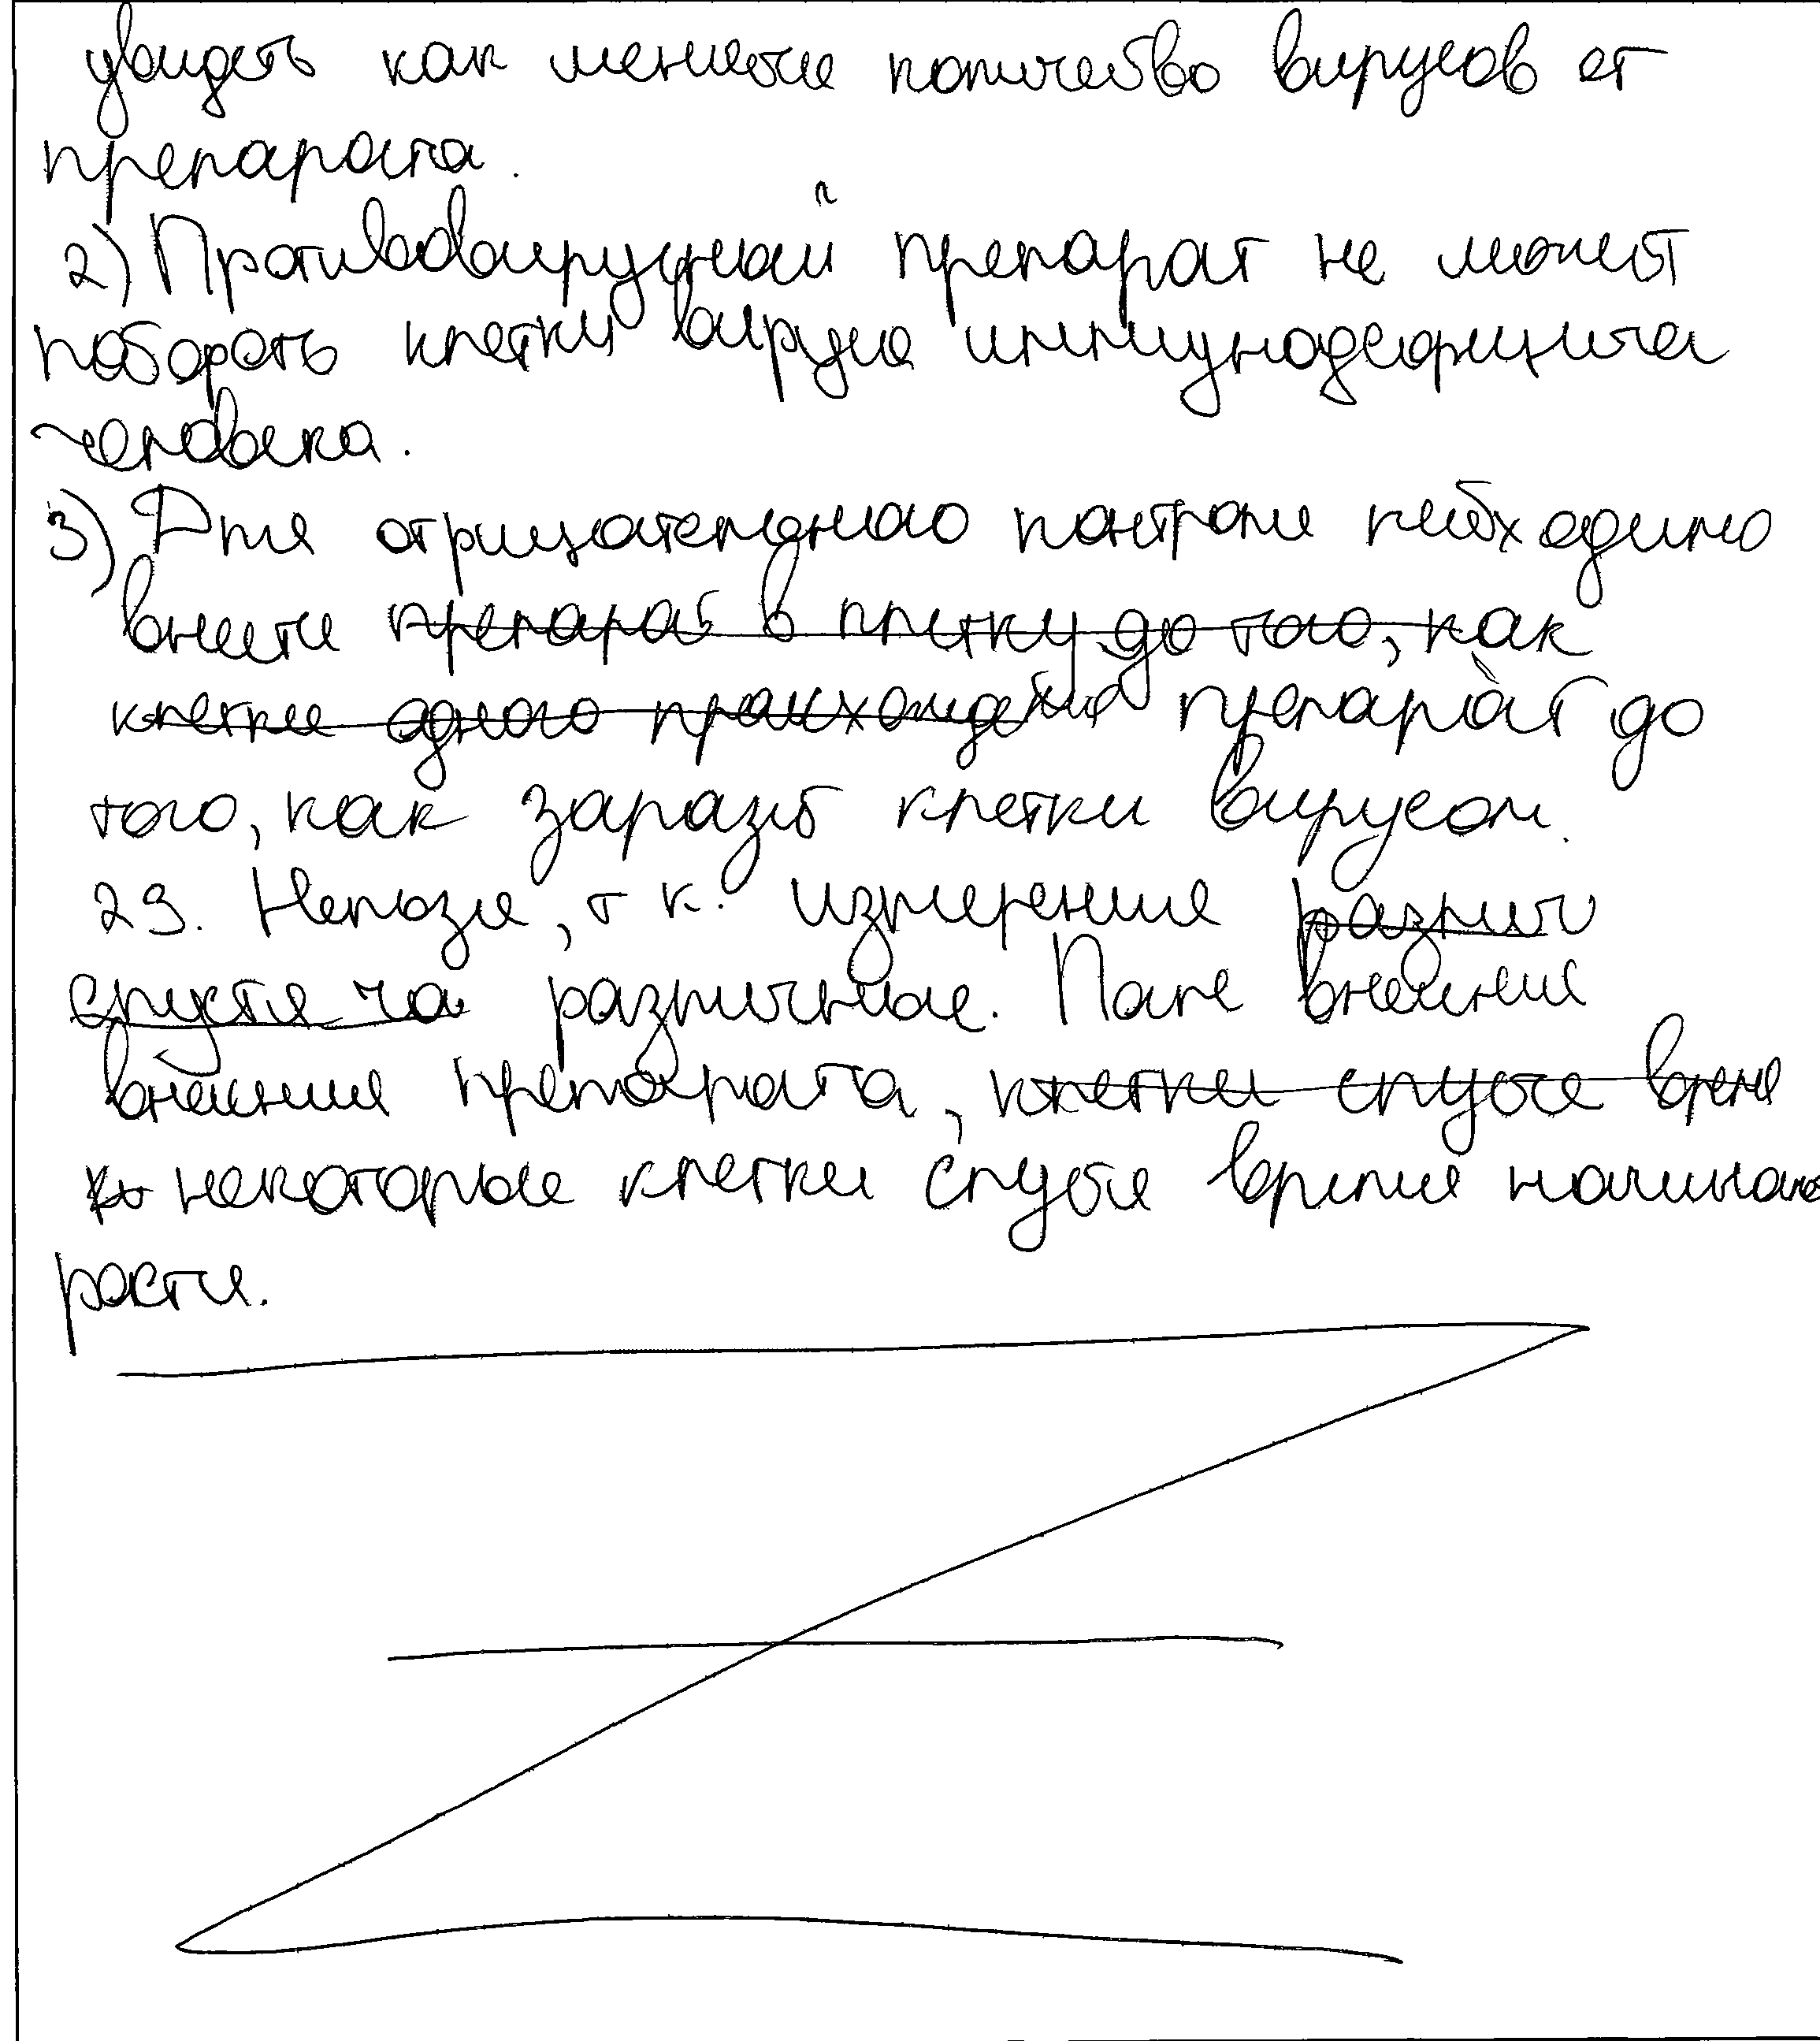 увидеть как меняется количество вирусов от
препарата.
2) Противовирусный препарат не может
побороть клетки вируса иммунодефицита
человека.
3) Для отрицательного контроля необходимо
внести препарат в клетку до того, как
клетки одного происхождения препарат до
того, как заразить клетки вирусом.
29. Нельзя, т к. измерения различ
спустя ча различные. После внесения
внесения препарата, клетки спустя время
некоторые клетки спустя время начинают
расти.